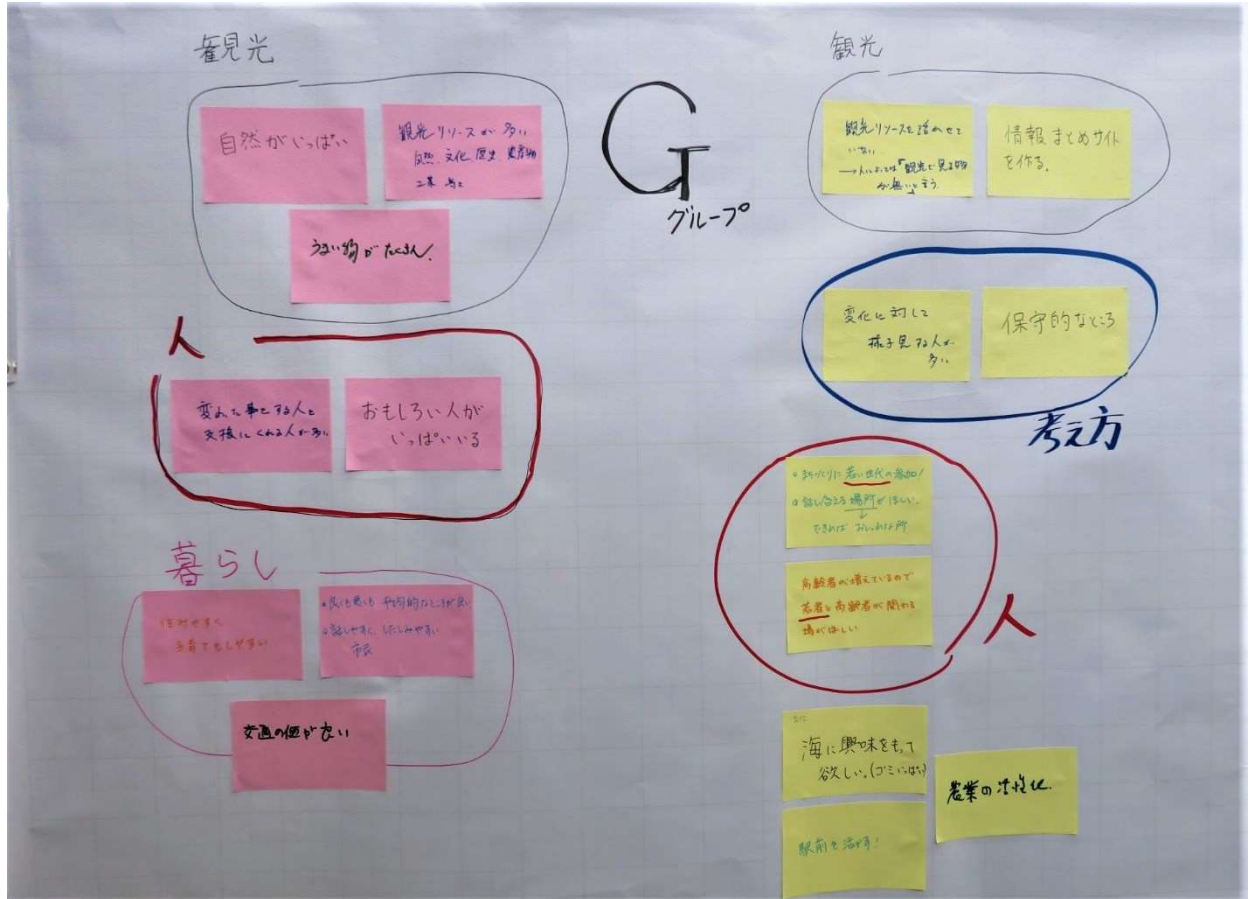 観光
自然がいっぱい
観光リソースが多い
自然、文化、歴史、農産物
工業 等と
うまい物がたくさん!
人
変わった事をする人を
支援してくれる人が多い
おもしろい人が
いっぱいいる
暮らし
住みやすく
子育てもしやすい
・良くも悪くも 平均的なところが良い
・話しやすく、したしみやすい
市長
交通の便が良い
G
グループ
観光
観光リソースを活かせて
いない
→人によっては「観光で見る物
が無い」と言う
情報まとめサイト
を作る。
変化に対して
様子見する人が
多い
保守的なところ
考え方
・まちづくりに若い世代の参加!
・話し合える場所がほしい。
↓
できれば おしゃれな所
高齢者が増えているので
若者と高齢者が関わる
場がほしい
人
海に興味をもって
欲しい。(ゴミいっぱい)
農業の活性化
駅前を活かす!